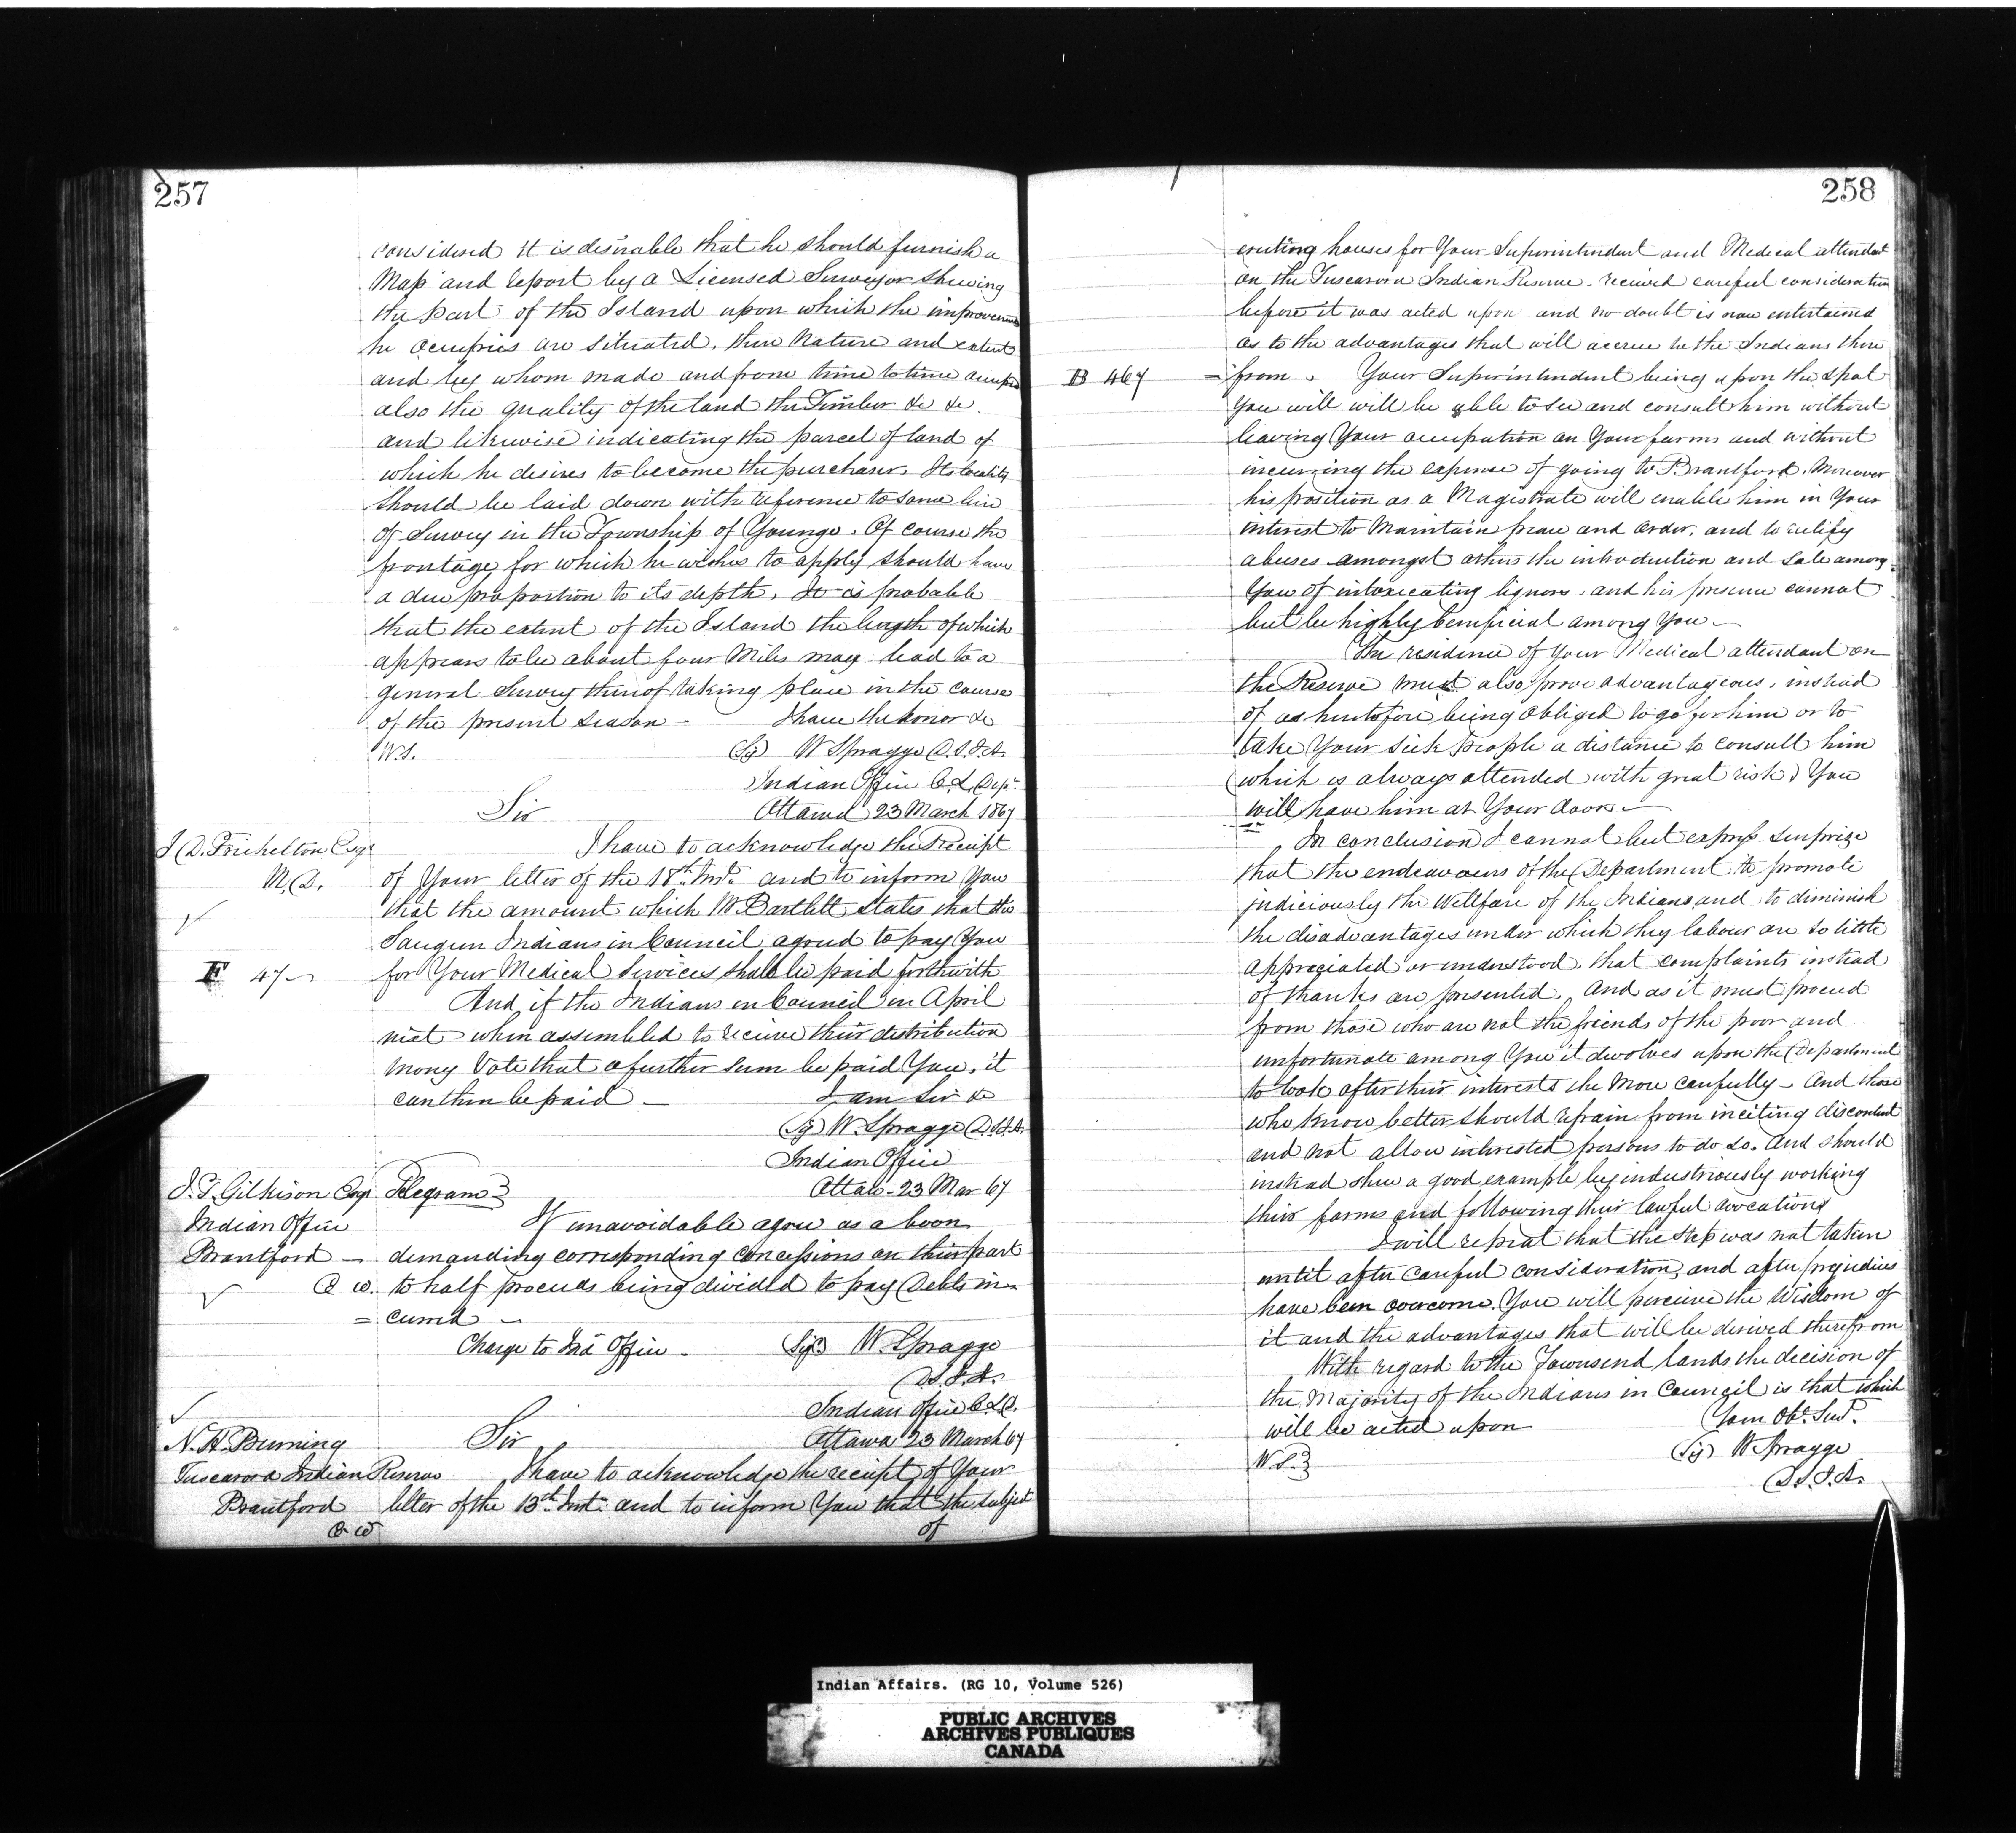 257
considered it is desirable that he should furnish a
Map and report by a Licensed Surveyor shewing
the part of the Island upon which the improvements
he occupies are situated, their nature and extent
and by whom made and from time to time occupied
also the quality of the land the Timber &c &c.
and likewise indicating the parcel of land of
which he desires to become the purchaser. Its locality
should be laid down with reference to some line
of Survey in the Township of Younge. Of course the
frontage for which he wishes to apply should have
a due proportion to its depth. It is probable
that the extent of the Island the length of which
appears to be about four Miles may lead to a
general Survey thereof taking place in the course
of the present season - I have the honor &c
W.S. (Sg) W Spragge D.S.I.A.
Indian Office C.L. Dept.
Sir Ottawa 23 March 1867
M.D. I have to acknowledge the Receipt
of Your letter of the 18th. Inst. and to inform You
that the amount which Mr Bartlett states that the
Saugeen Indians in Council agreed to pay You
F 47 for Your Medical Services shall be paid forthwith
And if the Indians in Council in April
next when assembled to receive their distribution
money Vote that a further sum be paid You, it
can then be paid — I am Sir &c
(Sg) W. Spragge D.S.I.A.
Indian Office
J.T. Gilkison Esqr Telegram} Ottawa - 23 Mar 67
Indian Office If unavoidable agree as a boon
Brantford — demanding corresponding concessions on their part
C. W. to half proceeds being divided to pay Debts in-
= curred -
Charge to Ind Office - (Sg) W. Spragge
D.S.I.A.
Indian Office C.L.D.
N. H. Burning Sir Ottawa 23 March 67
Tuscarora Indian Reserve I have to acknowledge the receipt of Your
Brantford letter of the 13th. Inst. and to inform You that the subject
C W of
258
erecting houses for Your Superintendent and Medical attendant
on the Tuscarora Indian Reserve. received careful consideration
before it was acted upon and no doubt is now entertained
as to the advantages that will accrue to the Indians there
B 467 = from. Your Superintendent being upon the spot
You will will be able to see and consult him without
leaving Your occupation on Your farms and without
incurring the expense of going to Brantford. Moreover
his position as a Magistrate will enable him in Your
interest to Maintain peace and order, and to rectify
abuses amongst others the introduction and sale among
You of intoxicating liquors. and his presence cannot
but be highly beneficial among You —
The residence of your Medical attendant on
the Reserve must also prove advantageous, instead
of as heretofore being obliged to go for him or to
take Your sick people a distance to consult him
(which is always attended with great risk) You
will have him at Your doors —
In conclusion I cannot but express surprize
that the endeavours of the Department to promote
judiciously the Wellfare of the Indians and to diminish
the disadvantages under which they labour are so little
appreciated or understood, that complaints instead
of thanks are presented. And as it must proceed
from those who are not the friends of the poor and
unfortunate among You it devolves upon the Department
to look after their interests the more carefully - And those
who know better should refrain from inciting discontent
and not allow interested persons to do so. And should
instead shew a good example by industriously working
their farms and following their lawful avocations
I will repeat that the step was not taken
until after careful consideration, and after prejudices
have been overcome. You will perceive the Wisdom of
it and the advantages that will be derived therefrom
With regard to the Townsend lands the decision of
the Majority of the Indians in Council is that which
will be acted upon Your Obt. Sert.
W.S.} (Sg) W Spragge
D.S.I.A.
Indian Affairs. (RG 10, Volume 526)
PUBLIC ARCHIVES
ARCHIVES PUBLIQUES
CANADA